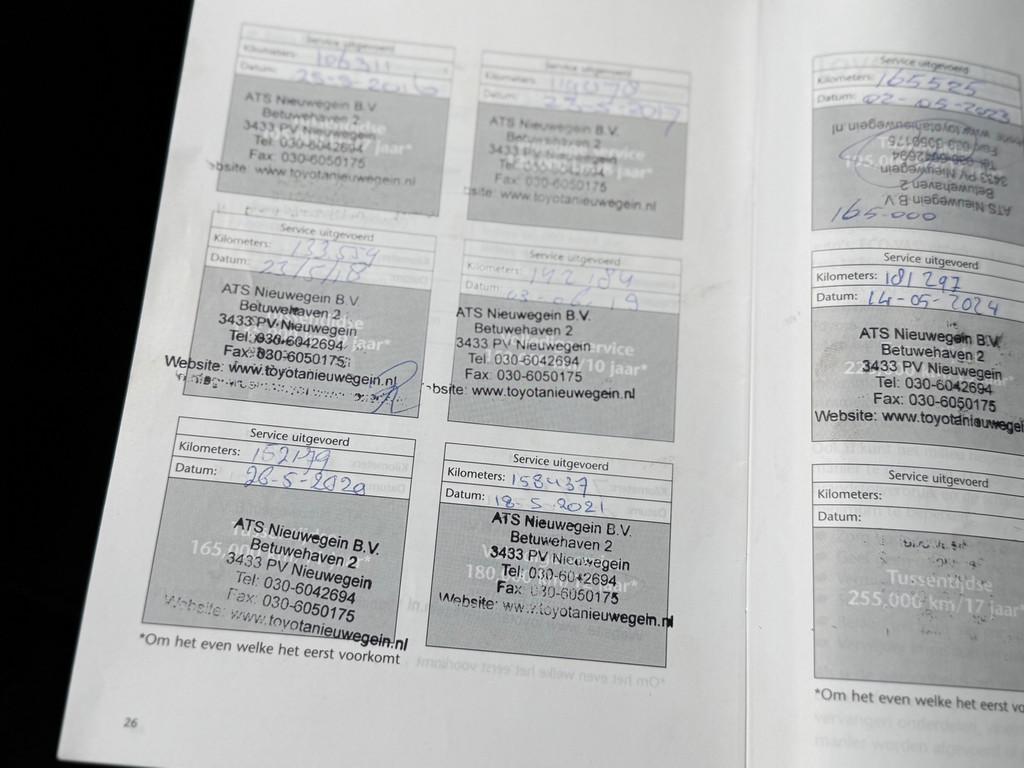 Service uitgevoerd
Kilometers: 106311
Datum: 25-5-2016
ATS Nieuwegein B.V.
Betuwehaven 2
3433 PV Nieuwegein
Tel: 030-6042694
Fax: 030-6050175
website: www.toyotanieuwegein.nl
Service uitgevoerd
Kilometers:
Datum:
ATS Nieuwegein B.V.
Betuwehaven 2
3433 PV Nieuwegein
Tel: 030-6042694
Fax: 030-6050175
website: www.toyotanieuwegein.nl
Service uitgevoerd
Kilometers: 133554
Datum: 23/5/18
ATS Nieuwegein B.V.
Betuwehaven 2
3433 PV Nieuwegein
Tel: 030-6042694
Fax: 030-6050175
Website: www.toyotanieuwegein.nl
Service uitgevoerd
Kilometers: 142184
Datum: 19
ATS Nieuwegein B.V.
Betuwehaven 2
3433 PV Nieuwegein
Tel: 030-6042694
Fax: 030-6050175
website: www.toyotanieuwegein.nl
Service uitgevoerd
Kilometers:
Datum: 26-5-2020
ATS Nieuwegein B.V.
Betuwehaven 2
3433 PV Nieuwegein
Tel: 030-6042694
Fax: 030-6050175
Website: www.toyotanieuwegein.nl
Service uitgevoerd
Kilometers: 158437
Datum: 18-5-2021
ATS Nieuwegein B.V.
Betuwehaven 2
3433 PV Nieuwegein
Tel: 030-6042694
Fax: 030-6050175
Website: www.toyotanieuwegein.nl
*Om het even welke het eerst voorkomt
26
Service uitgevoerd
Kilometers: 165525
Datum: 02-05-2023
ATS Nieuwegein B.V.
Betuwehaven 2
3433 PV Nieuwegein
165-000
Service uitgevoerd
Kilometers: 181297
Datum: 14-05-2024
ATS Nieuwegein B.V.
Betuwehaven 2
3433 PV Nieuwegein
Tel: 030-6042694
Fax: 030-6050175
Website: www.toyotanieuwegei
Service uitgevoerd
Kilometers:
Datum:
Tussentijdse
255,000 km/17 jaar*
*Om het even welke het eerst vo